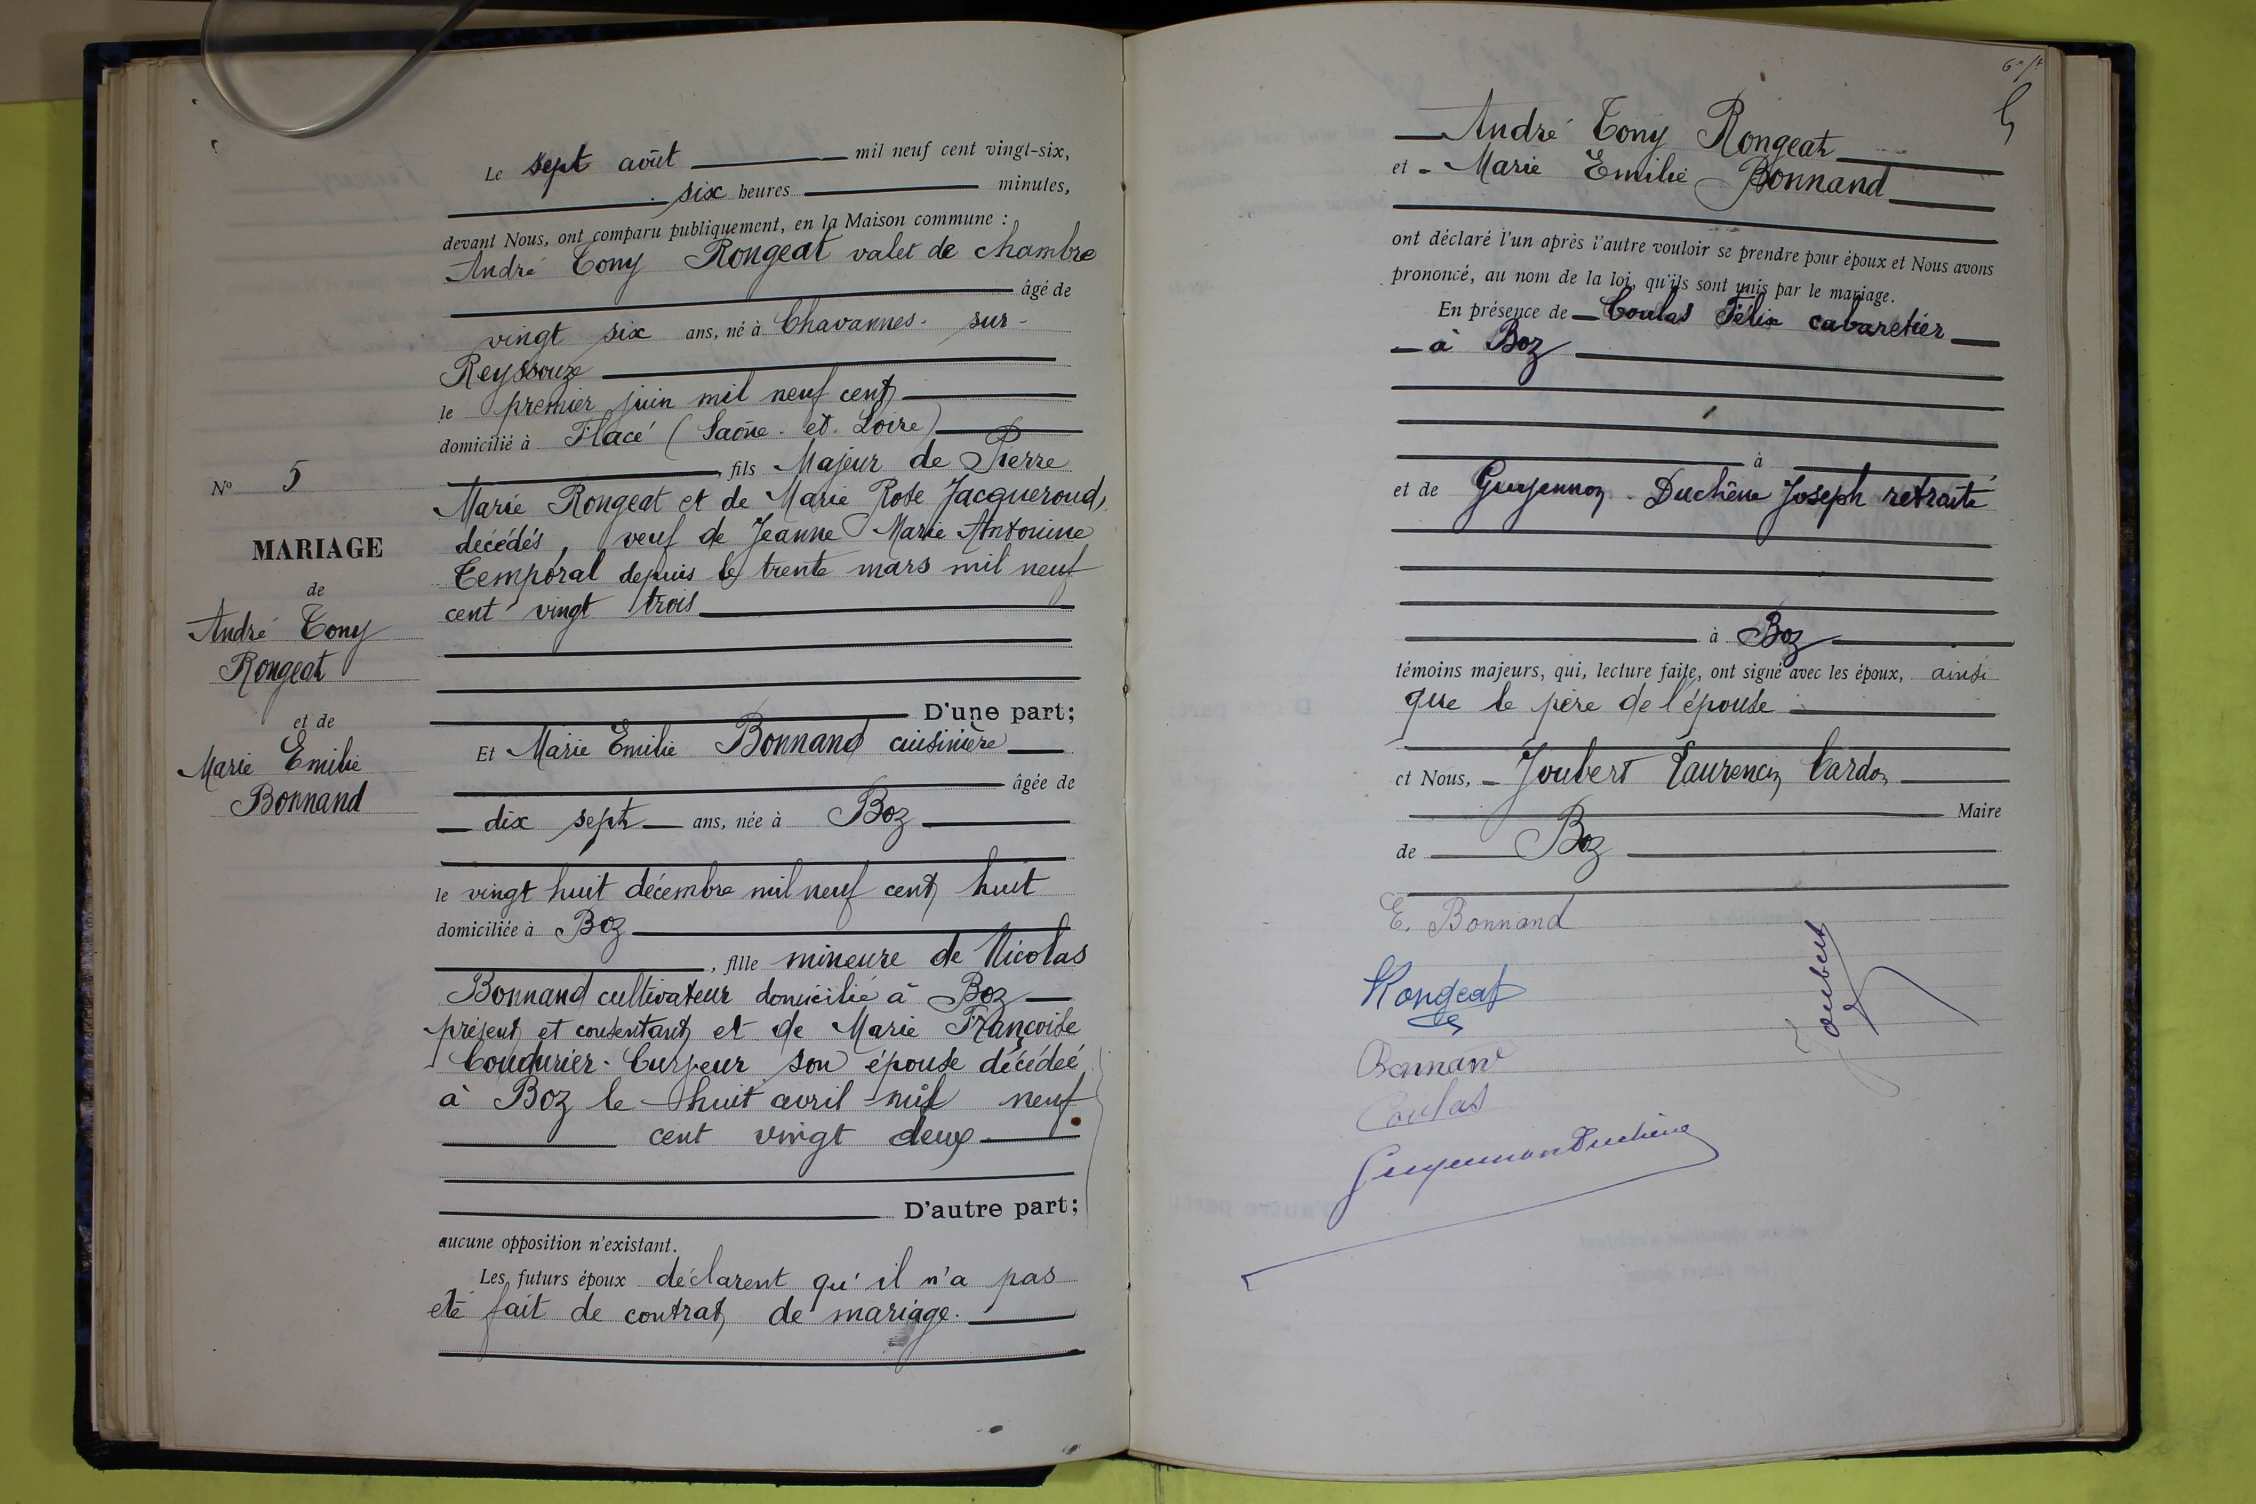 Le sept août mil neuf cent vingt-six,
six heures minutes,
devant Nous, ont comparu publiquement, en la Maison commune :
André Tony Rongeat valet de chambre
âgé de
vingt six ans, né à Chavannes-sur-
Reyssouze
le premier juin mil neuf cent
domicilié à Flacé (Saône-et-Loire)
, fils Majeur de Pierre
Marie Rongeat et de Marie Rose Jacqueroud,
décédés, veuf de Jeanne Marie Antonine
Temporal depuis le trente mars mil neuf
cent vingt trois
D'une part;
Et Marie Emilie Bonnand cuisinière
âgée de
dix sept ans, née à Boz
le vingt huit décembre mil neuf cent huit
domiciliée à Boz
, fille mineure de Nicolas
Bonnand cultivateur domicilié à Boz
présent et consentant et de Marie Françoise
Coudurier-Curveur son épouse décédée
à Boz le huit avril mil neuf
cent vingt deux
D'autre part;
aucune opposition n'existant.
Les futurs époux déclarent qu'il n'a pas
été fait de contrat de mariage.
N° 5
MARIAGE
de
André Tony
Rongeat
et de
Marie Emilie
Bonnand
5
André Tony Rongeat
et Marie Emilie Bonnand
ont déclaré l'un après l'autre vouloir se prendre pour époux et Nous avons
prononcé, au nom de la loi, qu'ils sont unis par le mariage.
En présence de Coulas Félix cabaretier
à Boz
à
et de Guyennon-Duchêne Joseph retraité
à Boz
témoins majeurs, qui, lecture faite, ont signé avec les époux, ainsi
que le père de l'épouse
et Nous, Joubert Laurencin Cardon
Maire
de Boz
E. Bonnand
Rongeat
Bonnand
Coulas
Guyennon Duchêne
Joubert